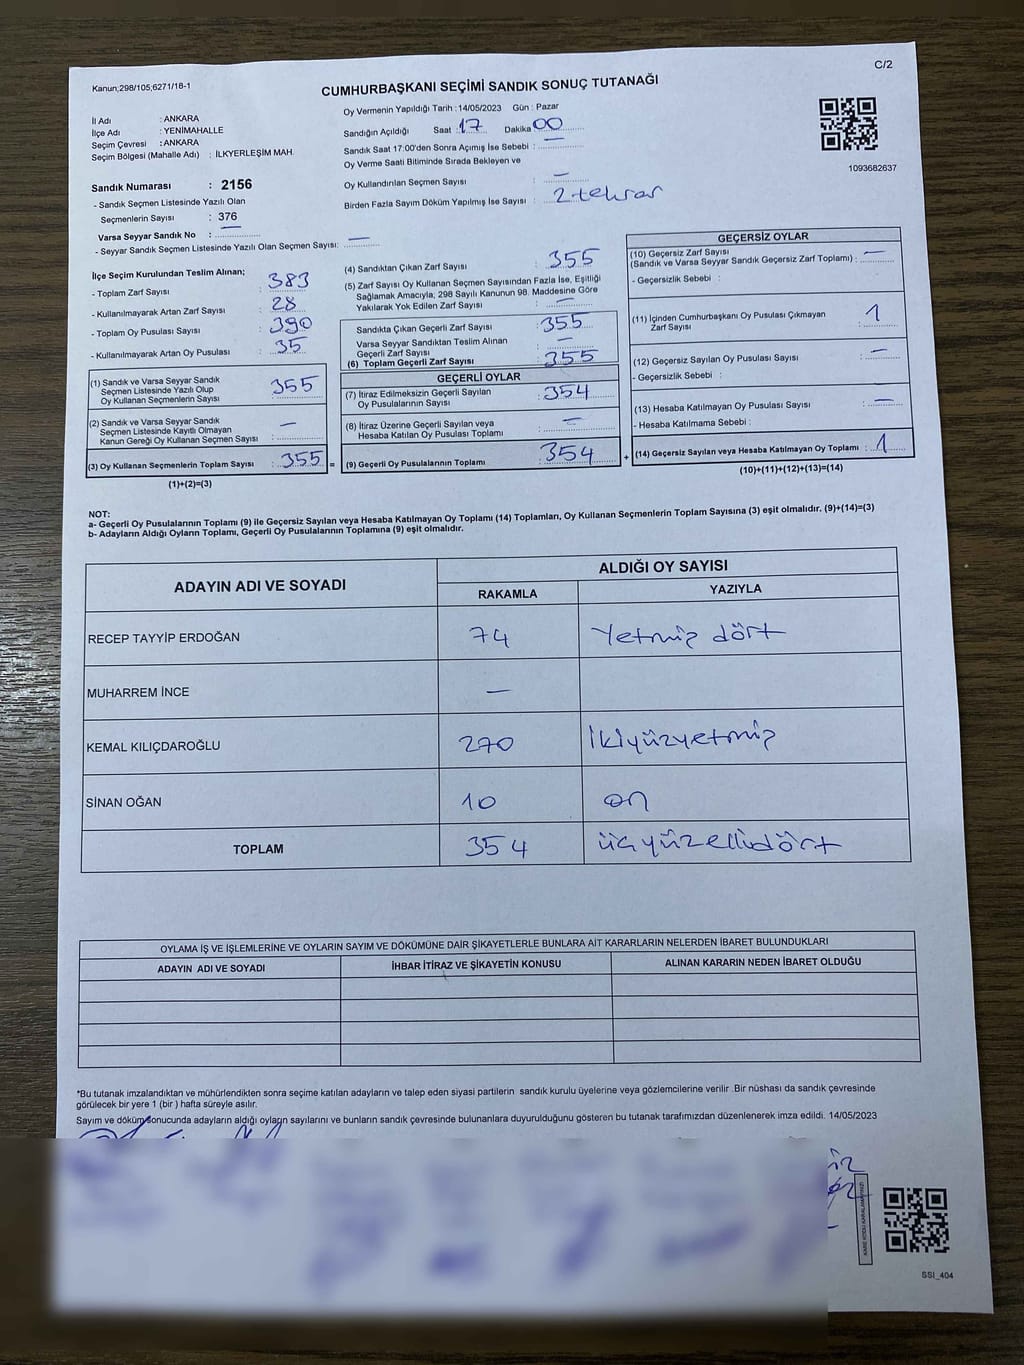 C/2
Kanun;298/105;6271/18-1
CUMHURBAŞKANI SEÇİMİ SANDIK SONUÇ TUTANAĞI
İl Adı : ANKARA
İlçe Adı : YENİMAHALLE
Seçim Çevresi : ANKARA
Seçim Bölgesi (Mahalle Adı) : İLKYERLEŞİM MAH.
Sandık Numarası : 2156
- Sandık Seçmen Listesinde Yazılı Olan
Seçmenlerin Sayısı : 376
Varsa Seyyar Sandık No : —
- Seyyar Sandık Seçmen Listesinde Yazılı Olan Seçmen Sayısı: —
Oy Vermenin Yapıldığı Tarih : 14/05/2023 Gün : Pazar
Sandığın Açıldığı Saat 17 Dakika 00
Sandık Saat 17:00'den Sonra Açımış İse Sebebi : —
Oy Verme Saati Bitiminde Sırada Bekleyen ve
Oy Kullandırılan Seçmen Sayısı : —
Birden Fazla Sayım Döküm Yapılmış İse Sayısı : 2 tekrar
1093682637
İlçe Seçim Kurulundan Teslim Alınan;
- Toplam Zarf Sayısı : 383
- Kullanılmayarak Artan Zarf Sayısı : 28
- Toplam Oy Pusulası Sayısı : 390
- Kullanılmayarak Artan Oy Pusulası : 35
(1) Sandık ve Varsa Seyyar Sandık
Seçmen Listesinde Yazılı Olup
Oy Kullanan Seçmenlerin Sayısı : 355
(2) Sandık ve Varsa Seyyar Sandık
Seçmen Listesinde Kayıtlı Olmayan
Kanun Gereği Oy Kullanan Seçmen Sayısı : —
(3) Oy Kullanan Seçmenlerin Toplam Sayısı : 355 =
(1)+(2)=(3)
(4) Sandıktan Çıkan Zarf Sayısı : 355
(5) Zarf Sayısı Oy Kullanan Seçmen Sayısından Fazla İse, Eşitliği
Sağlamak Amacıyla, 298 Sayılı Kanunun 98. Maddesine Göre
Yakılarak Yok Edilen Zarf Sayısı : —
Sandıkta Çıkan Geçerli Zarf Sayısı : 355
Varsa Seyyar Sandıktan Teslim Alınan
Geçerli Zarf Sayısı : —
(6) Toplam Geçerli Zarf Sayısı : 355
GEÇERLİ OYLAR
(7) İtiraz Edilmeksizin Geçerli Sayılan
Oy Pusulalarının Sayısı : 354
(8) İtiraz Üzerine Geçerli Sayılan veya
Hesaba Katılan Oy Pusulası Toplamı : —
(9) Geçerli Oy Pusulalarının Toplamı : 354 +
GEÇERSİZ OYLAR
(10) Geçersiz Zarf Sayısı
(Sandık ve Varsa Seyyar Sandık Geçersiz Zarf Toplamı) : —
- Geçersizlik Sebebi :
(11) İçinden Cumhurbaşkanı Oy Pusulası Çıkmayan
Zarf Sayısı : 1
(12) Geçersiz Sayılan Oy Pusulası Sayısı : —
- Geçersizlik Sebebi :
(13) Hesaba Katılmayan Oy Pusulası Sayısı : —
- Hesaba Katılmama Sebebi :
(14) Geçersiz Sayılan veya Hesaba Katılmayan Oy Toplamı : 1
(10)+(11)+(12)+(13)=(14)
NOT:
a- Geçerli Oy Pusulalarının Toplamı (9) ile Geçersiz Sayılan veya Hesaba Katılmayan Oy Toplamı (14) Toplamları, Oy Kullanan Seçmenlerin Toplam Sayısına (3) eşit olmalıdır. (9)+(14)=(3)
b- Adayların Aldığı Oyların Toplamı, Geçerli Oy Pusulalarının Toplamına (9) eşit olmalıdır.
ADAYIN ADI VE SOYADI ALDIĞI OY SAYISI
RAKAMLA YAZIYLA
RECEP TAYYİP ERDOĞAN 74 Yetmiş dört
MUHARREM İNCE —
KEMAL KILIÇDAROĞLU 270 İkiyüzyetmiş
SİNAN OĞAN 10 on
TOPLAM 354 üçyüzellidört
OYLAMA İŞ VE İŞLEMLERİNE VE OYLARIN SAYIM VE DÖKÜMÜNE DAİR ŞİKAYETLERLE BUNLARA AİT KARARLARIN NELERDEN İBARET BULUNDUKLARI
ADAYIN ADI VE SOYADI İHBAR İTİRAZ VE ŞİKAYETİN KONUSU ALINAN KARARIN NEDEN İBARET OLDUĞU
*Bu tutanak imzalandıktan ve mühürlendikten sonra seçime katılan adayların ve talep eden siyasi partilerin sandık kurulu üyelerine veya gözlemcilerine verilir .Bir nüshası da sandık çevresinde
görülecek bir yere 1 (bir ) hafta süreyle asılır.
Sayım ve döküm sonucunda adayların aldığı oyların sayılarını ve bunların sandık çevresinde bulunanlara duyurulduğunu gösteren bu tutanak tarafımızdan düzenlenerek imza edildi. 14/05/2023
SSI_404